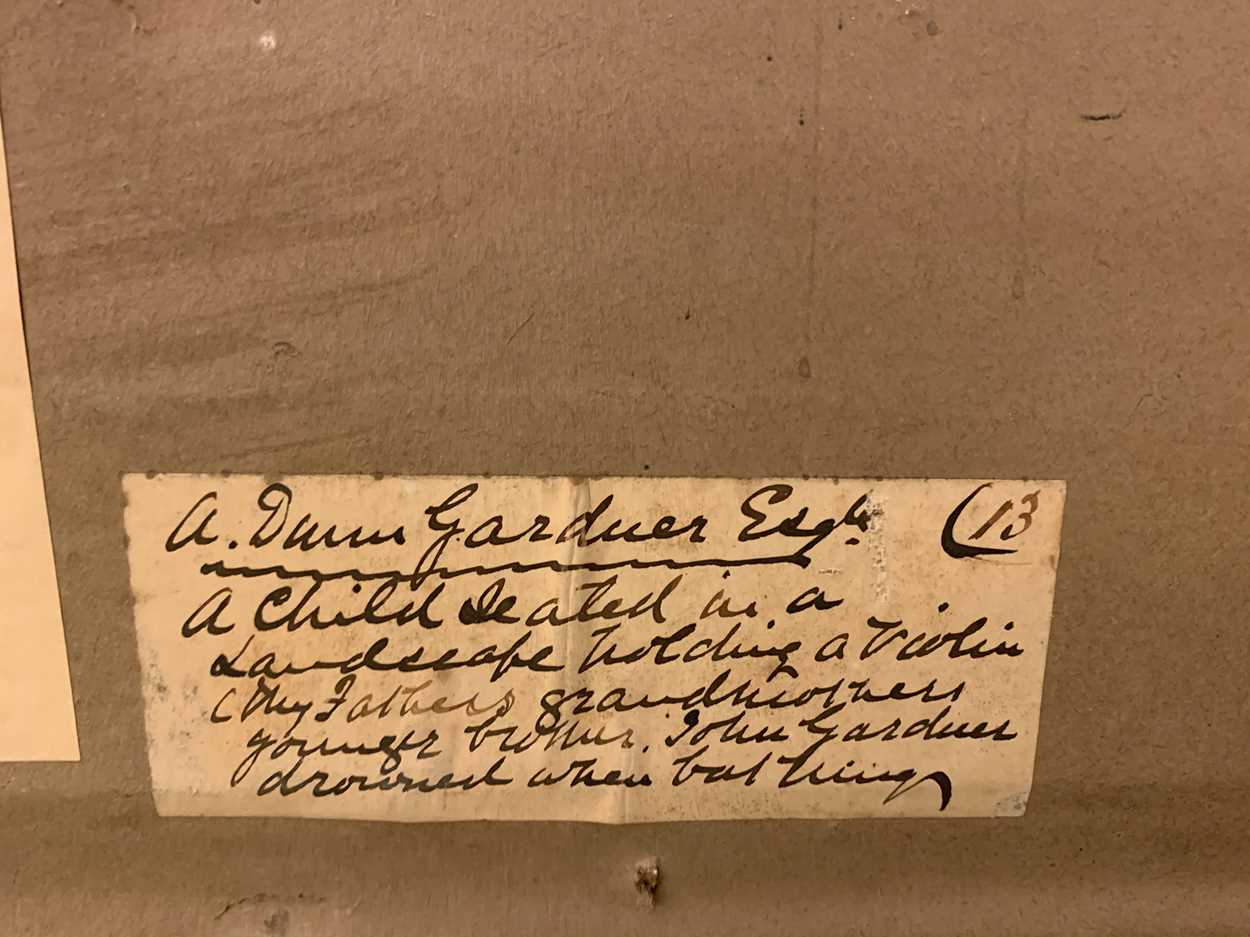 A. Dunn Gardner Esqr. (13
A Child Seated in a
Landscape holding a Violin
(My Fathers grandmothers
younger brother. John Gardner
drowned when bathing)